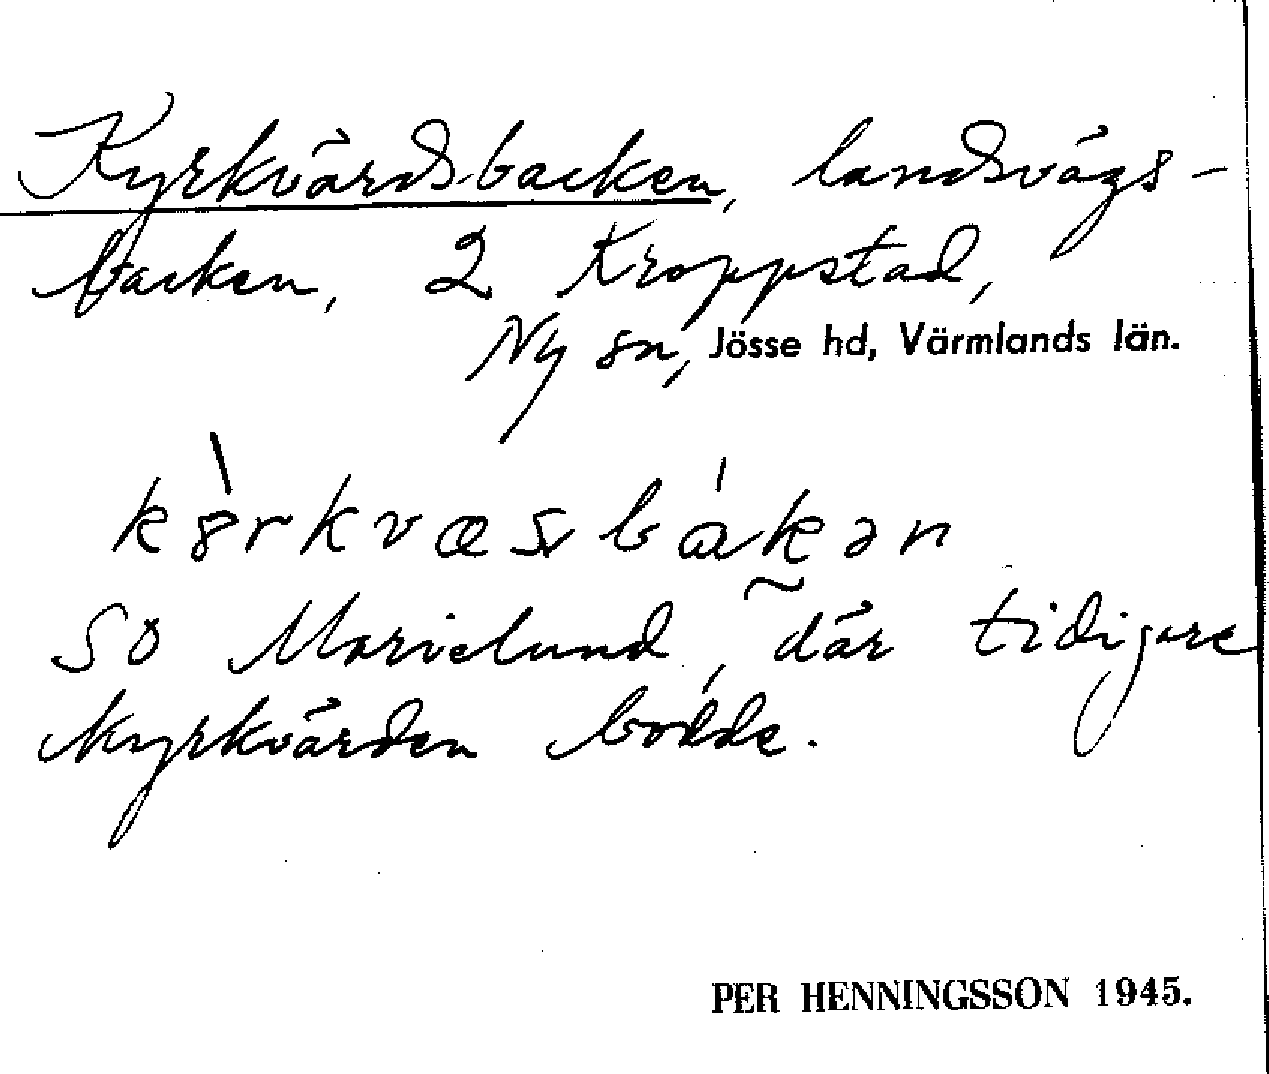 Kyrkvärdsbacken, landsvägs-
backen, 2 Kroppstad,
Ny sn, Jösse hd, Värmlands län.
kö̀rkvæsbákən
SO Marielund, där tidigare
kyrkvärden bodde.
PER HENNINGSSON 1945.